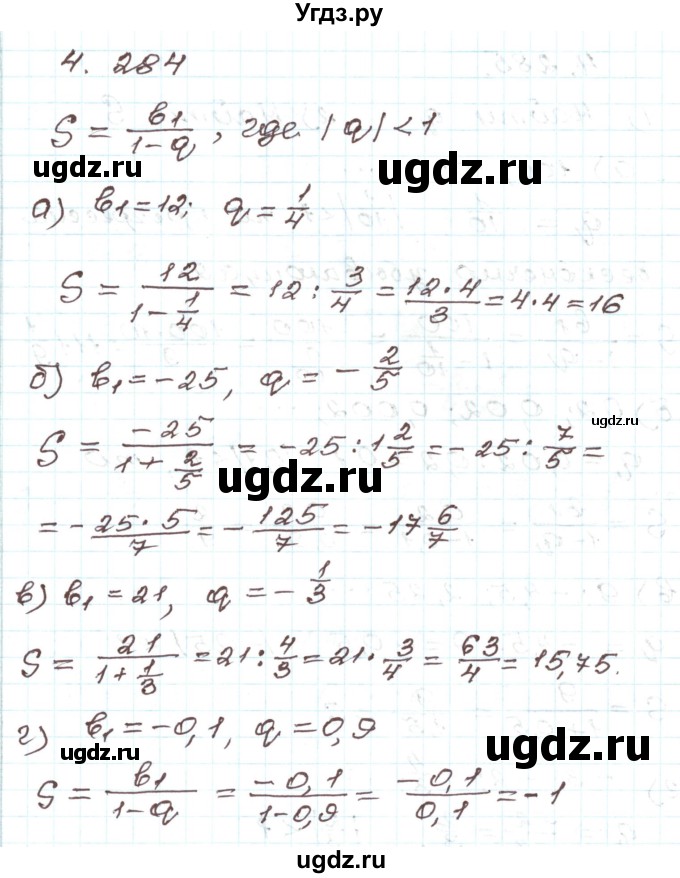 Угдз.ру
4. 284
S = b₁/(1-q), где |q| < 1
ugdz.ru
ugdz.ru
а) b₁ = 12; q = 1/4
S = 12/(1 - 1/4) = 12 : 3/4 = (12·4)/3 = 4·4 = 16
б) b₁ = -25, q = - 2/5
ugdz.ru
S = -25/(1 + 2/5) = -25 : 1 2/5 = -25 : 7/5 =
ugdz.ru
= - (25·5)/7 = - 125/7 = -17 6/7
в) b₁ = 21, q = - 1/3
S = 21/(1 + 1/3) = 21 : 4/3 = 21 · 3/4 = 63/4 = 15,75.
г) b₁ = -0,1, q = 0,9
ugdz.ru
ugdz.ru
S = b₁/(1-q) = -0,1/(1-0,9) = -0,1/0,1 = -1
ugdz.ru